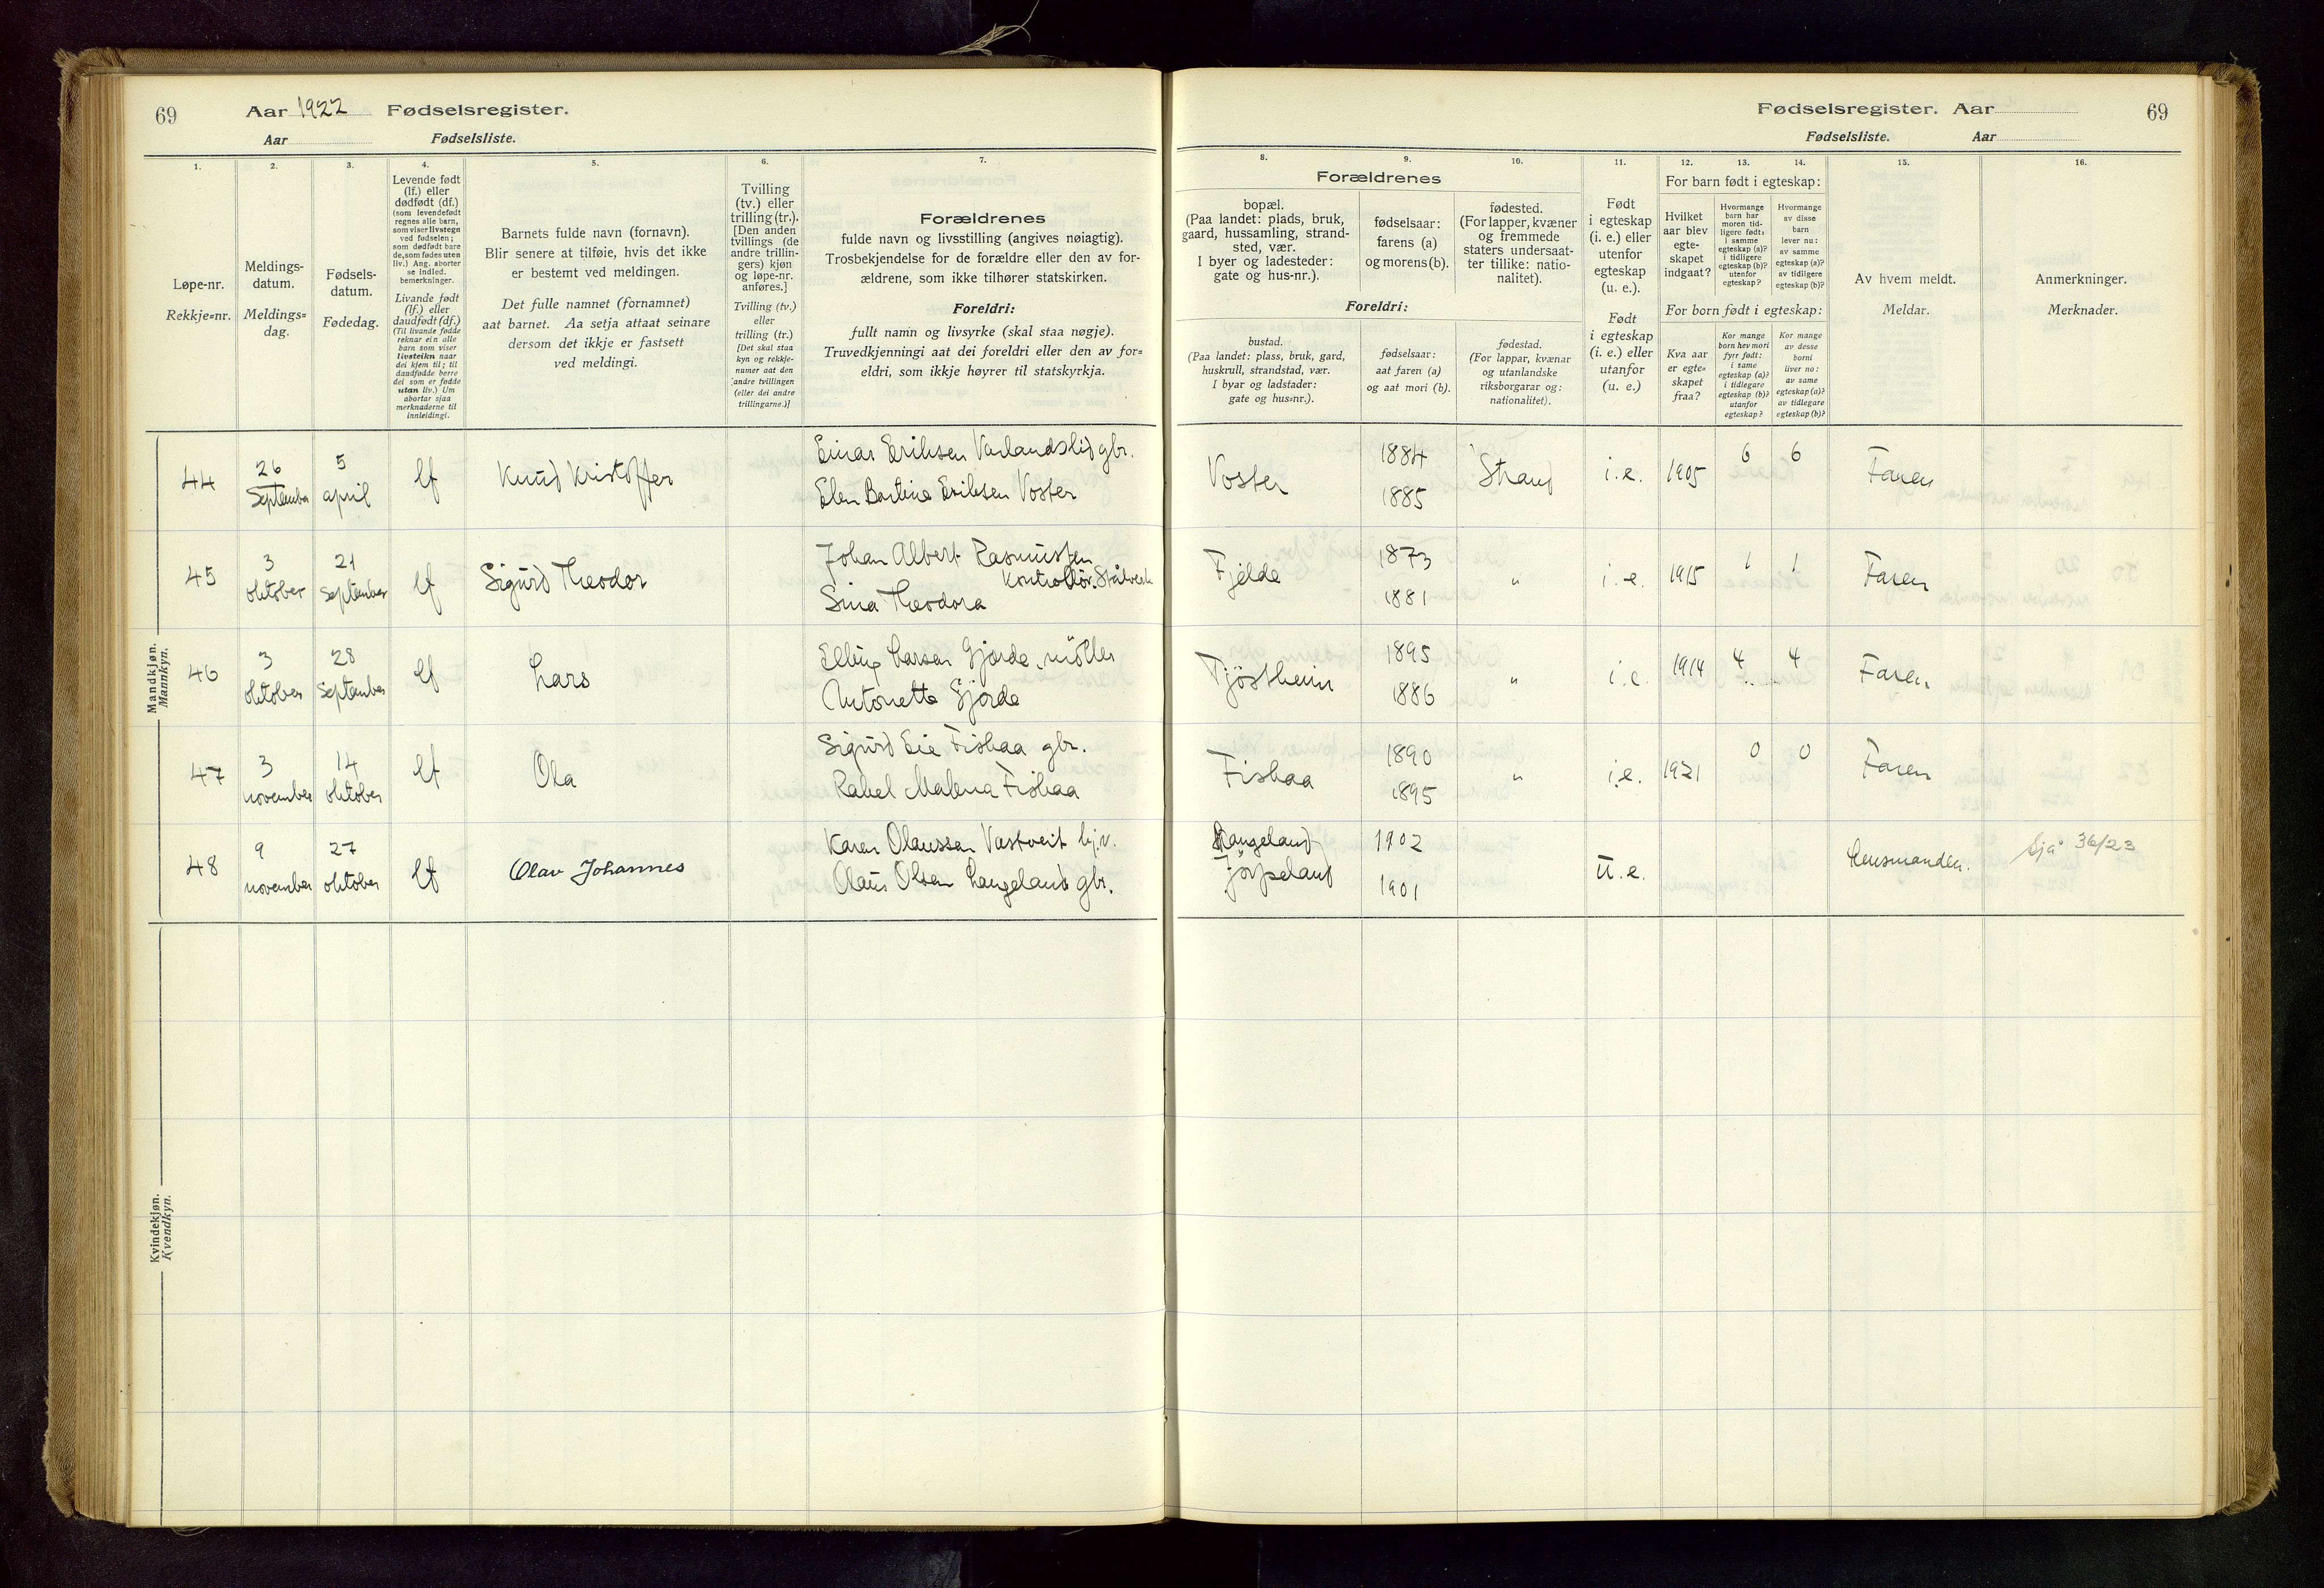 69
Aar 1922 Fødselsregister.
Aar Fødselsliste.
1.
Løpe-nr.
Rekkje=nr.
2.
Meldings-
datum.
Meldings=
dag.
3.
Fødsels-
datum.
Fødedag.
4.
Levende født
(lf.) eller
dødfødt (df.)
(som levendefødt
regnes alle barn,
som viser livstegn
ved fødselen;
som dødfødt bare
de, som fødes uten
liv.) Ang. aborter
se indled.
bemerkninger.
Livande født
(lf.) eller
daudfødt (df.)
(Til livande fødde
reknar ein alle
barn som viser
livsteikn naar
dei kjem til; til
daudfødde berre
dei som er fødde
utan liv.) Um
abortar sjaa
merknaderne til
innleidingi.
5.
Barnets fulde navn (fornavn).
Blir senere at tilføie, hvis det ikke
er bestemt ved meldingen.
Det fulle namnet (fornamnet)
aat barnet. Aa setja attaat seinare
dersom det ikkje er fastsett
ved meldingi.
6.
Tvilling
(tv.) eller
trilling (tr.).
[Den anden
tvillings (de
andre trillin-
gers) kjøn
og løpe-nr.
anføres.]
Tvilling (tv.)
eller
trilling (tr.)
[Det skal staa
kyn og rekkje-
numer aat den
andre tvillingen
(eller dei andre
trillingarne.)]
7.
Forældrenes
fulde navn og livsstilling (angives nøiagtig).
Trosbekjendelse for de forældre eller den av for-
ældrene, som ikke tilhører statskirken.
Foreldri:
fullt namn og livsyrke (skal staa nøgje).
Truvedkjenningi aat dei foreldri eller den av for=
eldri, som ikkje høyrer til statskyrkja.
Mandkjøn.
Mannkyn.
44
26
September
5
april
lf
Knud Kristoffer
Einar Eriksen Varlandslid gbr.
Elen Bertine Eriksen Voster
45
3
oktober
21
September
lf
Sigurd Theodor
Johan Albert Rasmussen
Kontrollør. Stålverk
Sina Theodora
46
3
oktober
28
September
lf
Lars
Elling Larsen Gjorde, möller
Antonette Gjorde
47
3
november
14
oktober
lf
Ola
Sigurd Eie Fiskaa gbr.
Rakel Malena Fiskaa
48
9
november
27
oktober
lf
Olav Johannes
Karen Olaussen Vastveit hj.v.
Olaus Olsen Langeland gbr.
Kvindekjøn.
Kvendkyn.
Fødselsregister. Aar
69
Fødselsliste. Aar
8.
Forældrenes
bopæl.
(Paa landet: plads, bruk,
gaard, hussamling, strand-
sted, vær.
I byer og ladesteder:
gate og hus-nr.).
Foreldri:
bustad.
(Paa landet: plass, bruk, gard,
huskrull, strandstad, vær.
I byar og ladstader:
gate og hus=nr.).
9.
fødselsaar:
farens (a)
og morens (b).
fødselsaar:
aat faren (a)
og aat mori (b).
10.
fødested.
(For lapper, kvæner
og fremmede
staters undersaat-
ter tillike: natio-
nalitet).
fødestad.
(For lappar, kvænar
og utanlandske
riksborgarar og:
nationalitet).
11.
Født
i egteskap
(i. e.) eller
utenfor
egteskap
(u. e.).
Født
i egteskap
(i. e.) eller
utanfor
(u. e.)
12.
For barn født i egteskap:
Hvilket
aar blev
egte-
skapet
indgaat?
For born født i egteskap:
Kva aar
er egte=
skapet
fraa?
13.
Hvormange
barn har
moren tid-
ligere født:
i samme
egteskap (a)?
i tidligere
egteskap (b)?
utenfor
egteskap?
Kor mange
born hev mori
fyrr født:
i same
egteskap (a)?
i tidlegare
egteskap (b)?
utanfor
egteskap?
14.
Hvormange
av disse
barn
lever nu:
av samme
egteskap (a)?
av tidligere
egteskap (b)?
Kor mange
av desse
borni
liver no:
av same
egteskap (a)?
av tidlegare
egteskap (b)?
15.
Av hvem meldt.
Meldar.
16.
Anmerkninger.
Merknader.
Voster
1884
1885
Strand
i.e.
1905
6
6
Faren
Fjelde
1873
1881
"
i.e.
1915
1
1
Faren
Tjöstheim
1895
1886
"
i.e.
1914
4
4
Faren
Fiskaa
1890
1895
"
i.e.
1921
0
0
Faren
Langeland
Jörpeland
1902
1901
u.e.
Lensmanden.
Sjå 36/23